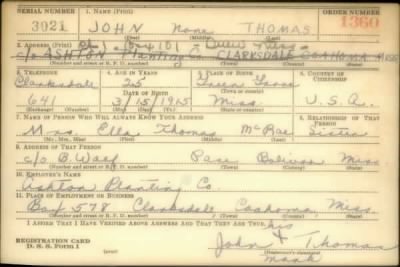 SERIAL NUMBER 1. NAME (Print) ORDER NUMBER
3021 JOHN None THOMAS 1360
(First) (Middle) (Last)
2. ADDRESS (Print)
c/o ASHTON Planting Co. CLARKSDALE COAHOMA MISS
(Number and street or R. F. D. number) (Town) (County) (State)
3. TELEPHONE 4. AGE IN YEARS 5. PLACE OF BIRTH 6. COUNTRY OF CITIZENSHIP
Clarksdale 25
DATE OF BIRTH
641 3/15/1915 Miss. U.S.A.
(Exchange) (Number) (Mo.) (Day) (Yr.) (State or country)
7. NAME OF PERSON WHO WILL ALWAYS KNOW YOUR ADDRESS 8. RELATIONSHIP OF THAT PERSON
Mrs. Ella Thomas McRae Sister
(Mr., Mrs., Miss) (First) (Middle) (Last)
9. ADDRESS OF THAT PERSON
c/o B. Pace Bolivar Miss.
(Number and street or R. F. D. number) (Town) (County) (State)
10. EMPLOYER'S NAME
Ashton Planting Co.
11. PLACE OF EMPLOYMENT OR BUSINESS
Box 578 Clarksdale Coahoma Miss.
(Number and street or R. F. D. number) (Town) (County) (State)
I AFFIRM THAT I HAVE VERIFIED ABOVE ANSWERS AND THAT THEY ARE TRUE.
his
REGISTRATION CARD John X Thomas
D. S. S. Form 1 mark